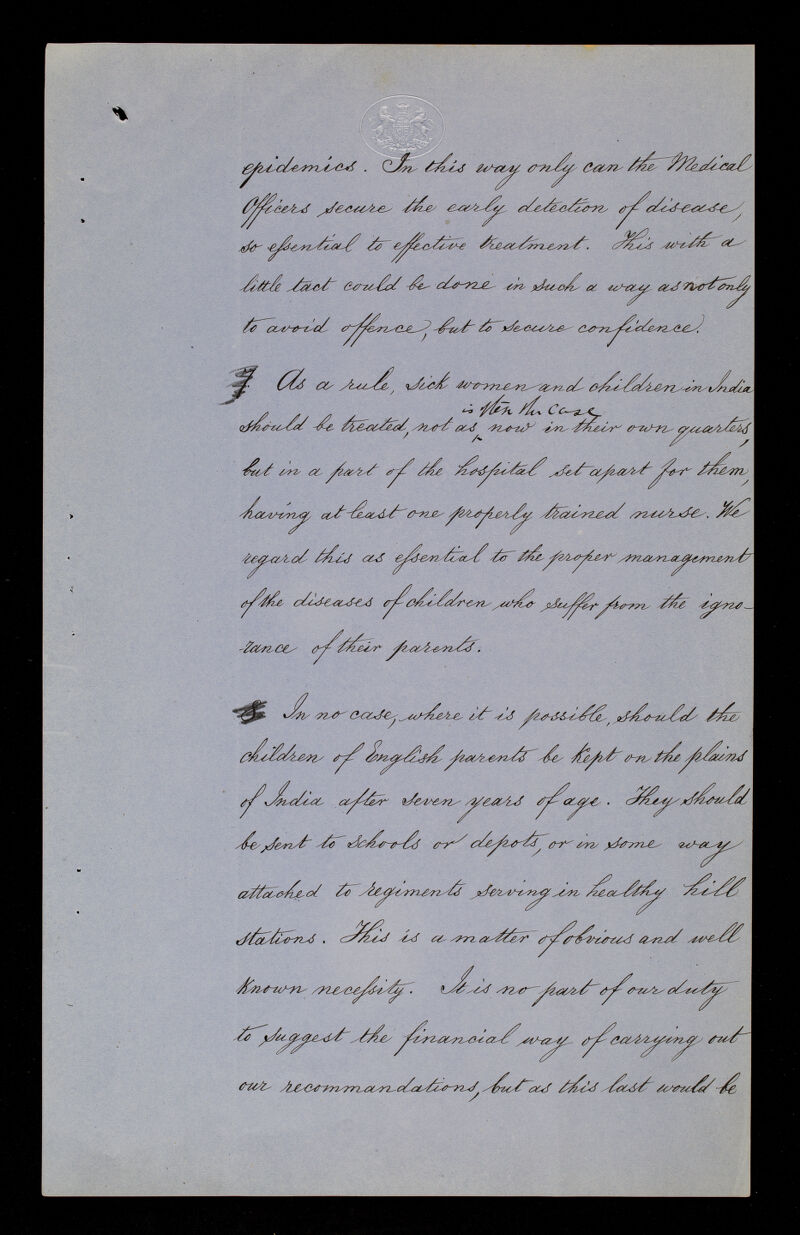 epidemics. In this way only can the Medical
Officers secure the early detection of disease,
so eſsential to effective treatment. This with a
little tact could be done in such a way as not only
to avoid offence, but to secure confidence.
7. As a rule, sick women and children in India
is often the case
should be treated, not as ‸ now in their own quarters,
but in a part of the hospital set apart for them,
having at least one properly trained nurse. We
regard this as eſsential to the proper management
of the diseases of children who suffer from the igno-
rance of their parents.
8 In no case, where it is possible, should the
children of English parents be kept on the plains
of India after seven years of age. They should
be sent to schools or depots, or in some way
attached to regiments serving in healthy hill
stations. This is a matter of obvious and well
known neceſsity. It is no part of our duty
to suggest the financial way of carrying out
our recommandations, but as this last would be